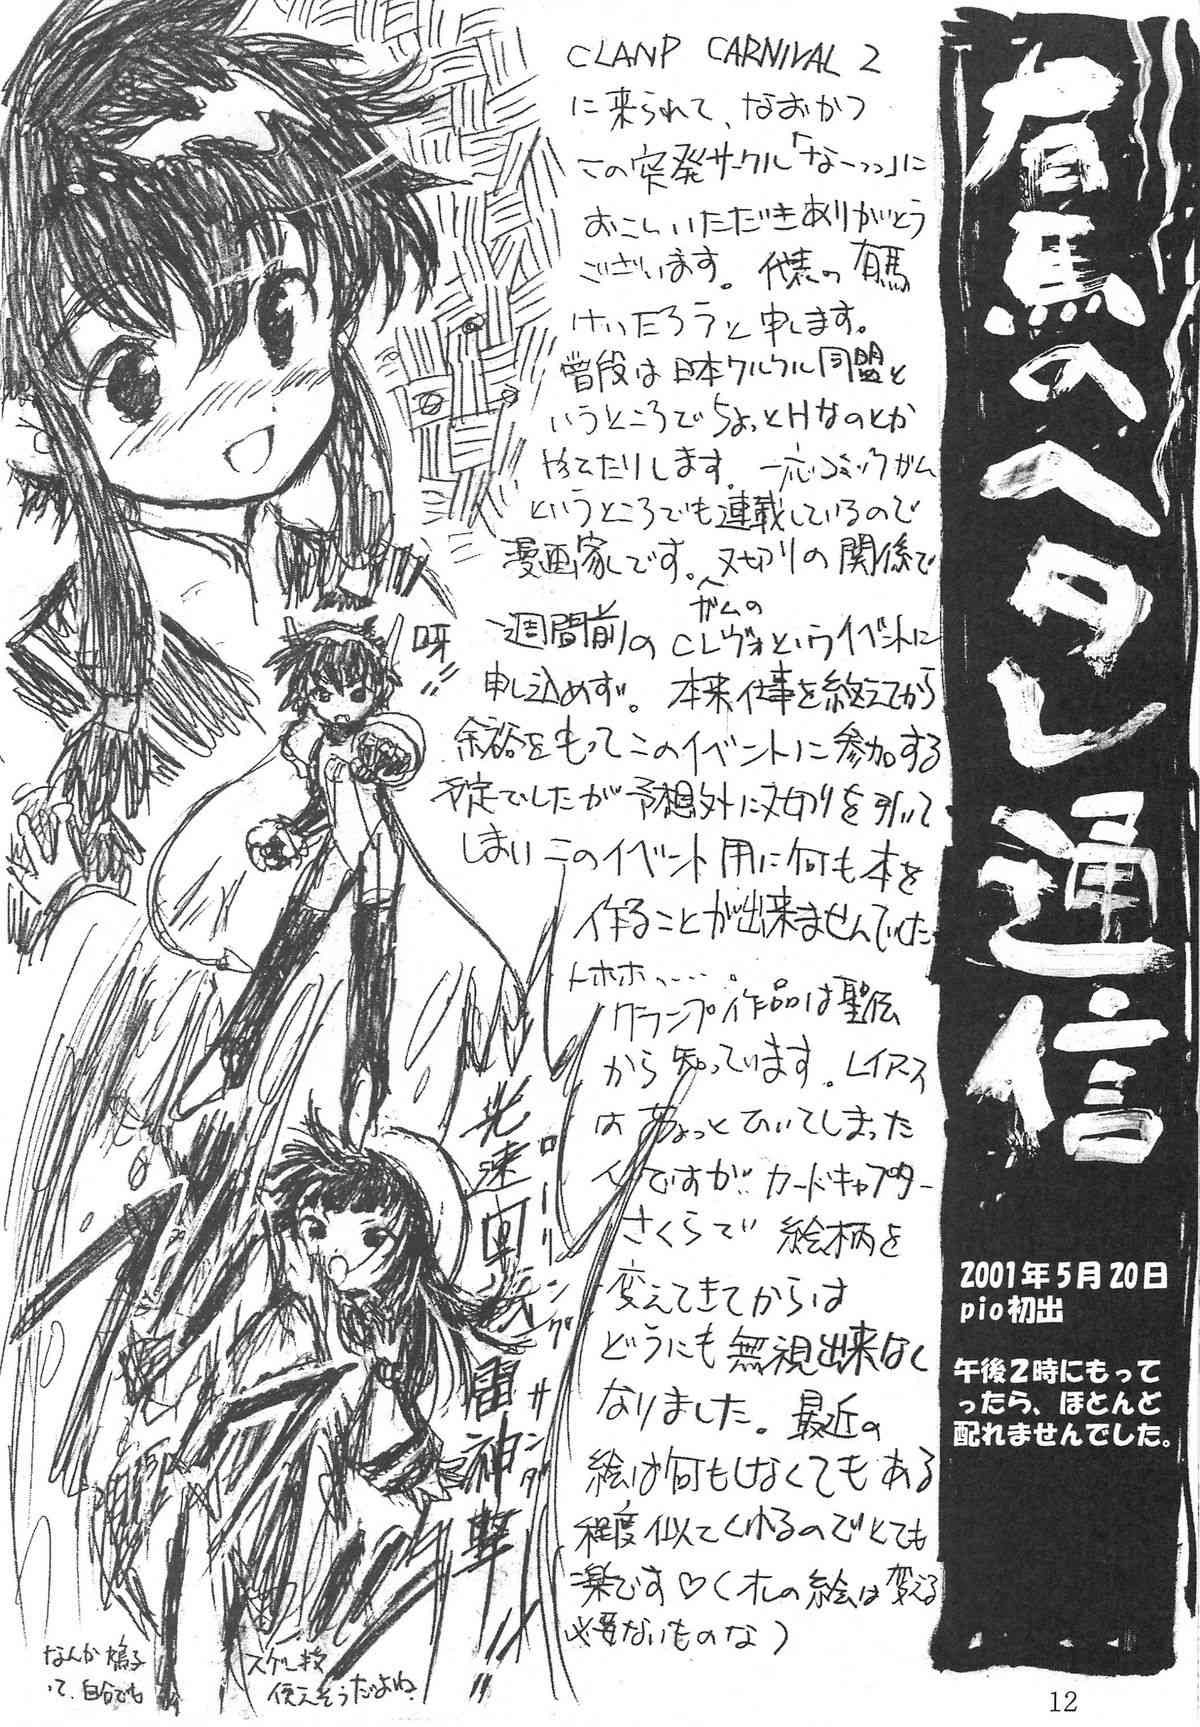 有馬のヘタレ通信
2001年5月20日
pio初出
午後2時にもって
ったら、ほとんど
配れませんでした。
CLANP CARNIVAL 2
に来られて、なおかつ
この突発サークル「なーっっ」に
おこしいただきありがとう
ございます。代表の有馬
けいたろうと申します。
普段は日本クルクル同盟と
いうところでちょっとHなのとか
やってたりします。一応コミックガム
というところでも連載しているので
漫画家です。〆切りの関係で
一週間前のガムのCレヴォというイベントに
申し込めず。本来仕事を終えてから
余裕をもってこのイベントに参加する
予定でしたが予想外に〆切りを引いて
しまいこのイベント用に何も本を
作ることが出来ませんでした
トホホ……。
クランプ作品は聖伝
から知っています。レイアース
はちょっとひいてしまった
んですが、カードキャプター
さくらで絵柄を
変えてきてからは
どうにも無視出来なく
なりました。最近の
絵は何もしなくてもある
程度似てくれるのでとても
楽です♡(オレの絵は変える
必要ないものな)
呀!!
光速回転雷神撃
ローリングサンダー
なんか鳩子
って、自分でも
使えそうだよね
12